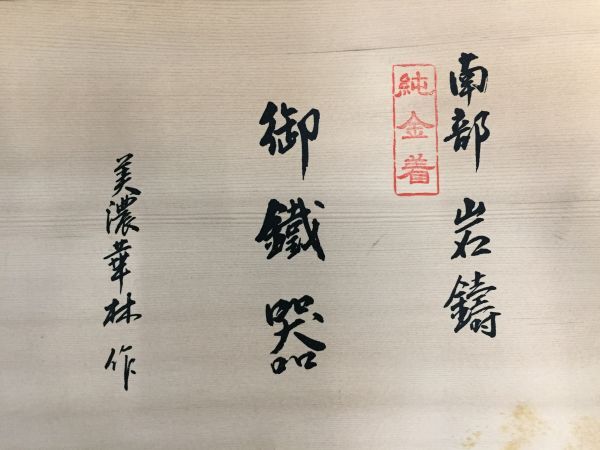 南部 岩鑄
純金着
御鐵器
美濃華林作